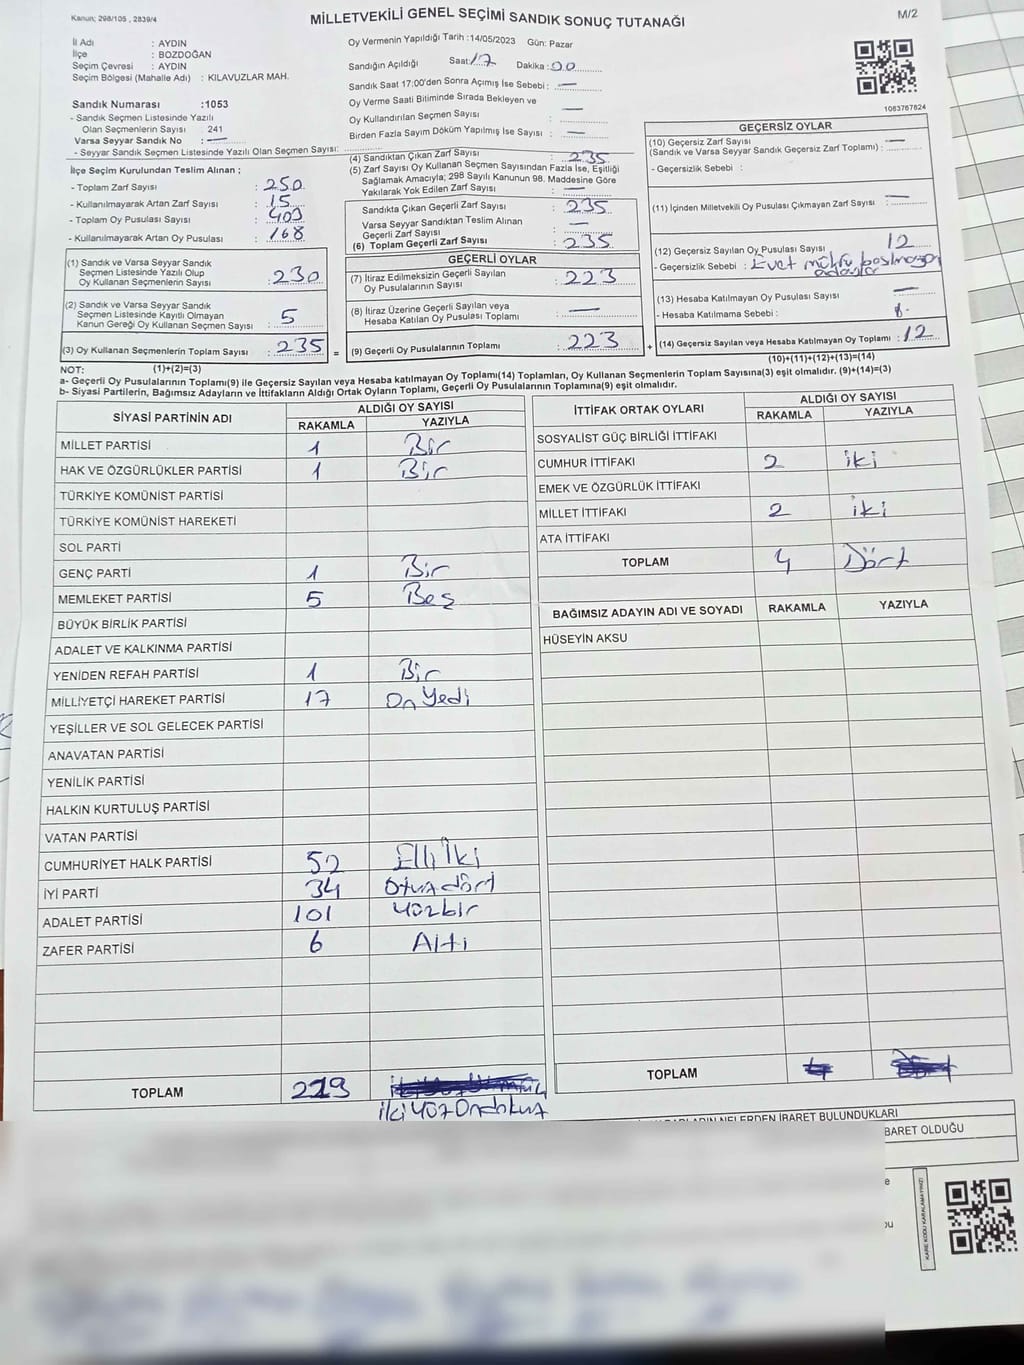 Kanun; 298/105 , 2839/4
MİLLETVEKİLİ GENEL SEÇİMİ SANDIK SONUÇ TUTANAĞI
M/2
İl Adı : AYDIN
İlçe : BOZDOĞAN
Seçim Çevresi : AYDIN
Seçim Bölgesi (Mahalle Adı) : KILAVUZLAR MAH.
Sandık Numarası :1053
- Sandık Seçmen Listesinde Yazılı
Olan Seçmenlerin Sayısı : 241
Varsa Seyyar Sandık No : —
- Seyyar Sandık Seçmen Listesinde Yazılı Olan Seçmen Sayısı:
Oy Vermenin Yapıldığı Tarih :14/05/2023 Gün: Pazar
Sandığın Açıldığı Saat: 17 Dakika: 00
Sandık Saat 17:00'den Sonra Açımış İse Sebebi : —
Oy Verme Saati Bitiminde Sırada Bekleyen ve
Oy Kullandırılan Seçmen Sayısı : —
Birden Fazla Sayım Döküm Yapılmış İse Sayısı : —
1063767624
İlçe Seçim Kurulundan Teslim Alınan ;
- Toplam Zarf Sayısı : 250
- Kullanılmayarak Artan Zarf Sayısı : 15
- Toplam Oy Pusulası Sayısı : 403
- Kullanılmayarak Artan Oy Pusulası : 168
(1) Sandık ve Varsa Seyyar Sandık
Seçmen Listesinde Yazılı Olup
Oy Kullanan Seçmenlerin Sayısı : 230
(2) Sandık ve Varsa Seyyar Sandık
Seçmen Listesinde Kayıtlı Olmayan
Kanun Gereği Oy Kullanan Seçmen Sayısı : 5
(3) Oy Kullanan Seçmenlerin Toplam Sayısı : 235 =
(4) Sandıktan Çıkan Zarf Sayısı : 235
(5) Zarf Sayısı Oy Kullanan Seçmen Sayısından Fazla İse, Eşitliği
Sağlamak Amacıyla; 298 Sayılı Kanunun 98. Maddesine Göre
Yakılarak Yok Edilen Zarf Sayısı : —
Sandıkta Çıkan Geçerli Zarf Sayısı : 235
Varsa Seyyar Sandıktan Teslim Alınan
Geçerli Zarf Sayısı : —
(6) Toplam Geçerli Zarf Sayısı : 235
GEÇERLİ OYLAR
(7) İtiraz Edilmeksizin Geçerli Sayılan
Oy Pusulalarının Sayısı : 223
(8) İtiraz Üzerine Geçerli Sayılan veya
Hesaba Katılan Oy Pusulası Toplamı : —
(9) Geçerli Oy Pusulalarının Toplamı : 223 +
GEÇERSİZ OYLAR
(10) Geçersiz Zarf Sayısı
(Sandık ve Varsa Seyyar Sandık Geçersiz Zarf Toplamı) : —
- Geçersizlik Sebebi :
(11) İçinden Milletvekili Oy Pusulası Çıkmayan Zarf Sayısı : —
(12) Geçersiz Sayılan Oy Pusulası Sayısı : 12
- Geçersizlik Sebebi : Evet mührü basılmayan
(13) Hesaba Katılmayan Oy Pusulası Sayısı : —
- Hesaba Katılmama Sebebi :
(14) Geçersiz Sayılan veya Hesaba Katılmayan Oy Toplamı : 12
NOT: (1)+(2)=(3)
(10)+(11)+(12)+(13)=(14)
a- Geçerli Oy Pusulalarının Toplamı(9) ile Geçersiz Sayılan veya Hesaba katılmayan Oy Toplamı(14) Toplamları, Oy Kullanan Seçmenlerin Toplam Sayısına(3) eşit olmalıdır. (9)+(14)=(3)
b- Siyasi Partilerin, Bağımsız Adayların ve İttifakların Aldığı Ortak Oyların Toplamı, Geçerli Oy Pusulalarının Toplamına(9) eşit olmalıdır.
SİYASİ PARTİNİN ADI
ALDIĞI OY SAYISI
RAKAMLA YAZIYLA
MİLLET PARTİSİ 1 Bir
HAK VE ÖZGÜRLÜKLER PARTİSİ 1 Bir
TÜRKİYE KOMÜNİST PARTİSİ
TÜRKİYE KOMÜNİST HAREKETİ
SOL PARTİ
GENÇ PARTİ 1 Bir
MEMLEKET PARTİSİ 5 Beş
BÜYÜK BİRLİK PARTİSİ
ADALET VE KALKINMA PARTİSİ
YENİDEN REFAH PARTİSİ 1 Bir
MİLLİYETÇİ HAREKET PARTİSİ 17 On Yedi
YEŞİLLER VE SOL GELECEK PARTİSİ
ANAVATAN PARTİSİ
YENİLİK PARTİSİ
HALKIN KURTULUŞ PARTİSİ
VATAN PARTİSİ
CUMHURİYET HALK PARTİSİ 52 Elli İki
İYİ PARTİ 34 Otuz dört
ADALET PARTİSİ 101 Yüz bir
ZAFER PARTİSİ 6 Altı
TOPLAM 219
iki Yüz Ondokuz
İTTİFAK ORTAK OYLARI
ALDIĞI OY SAYISI
RAKAMLA YAZIYLA
SOSYALİST GÜÇ BİRLİĞİ İTTİFAKI
CUMHUR İTTİFAKI 2 iki
EMEK VE ÖZGÜRLÜK İTTİFAKI
MİLLET İTTİFAKI 2 iki
ATA İTTİFAKI
TOPLAM 4 Dört
BAĞIMSIZ ADAYIN ADI VE SOYADI RAKAMLA YAZIYLA
HÜSEYİN AKSU
TOPLAM
NELERDEN İBARET BULUNDUKLARI
BARET OLDUĞU
KARE KODU KARALAMAYINIZ!